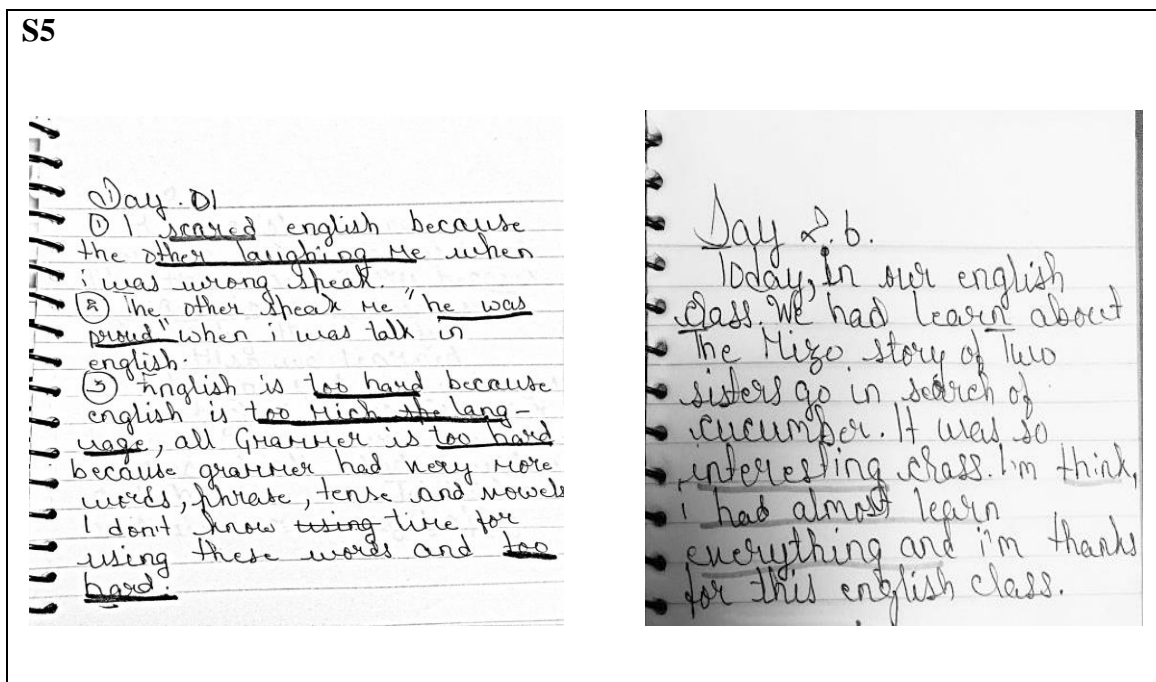 S5
Day. 01
① I scared english because
the other laughing me when
i was wrong speak.
② The other speak me "he was
proud" when i was talk in
english.
③ English is too hard because
english is too rich the lang-
uage, all Grammer is too hard
because grammer had very more
words, phrase, tense and vowels
I don't know using time for
using these words and too
hard.
Day 26.
Today, In our english
class. We had learn about
The Mizo story of Two
sisters go in search of
cucumber. It was so
interesting class. I'm think,
i had almost learn
everything and i'm thanks
for this english class.